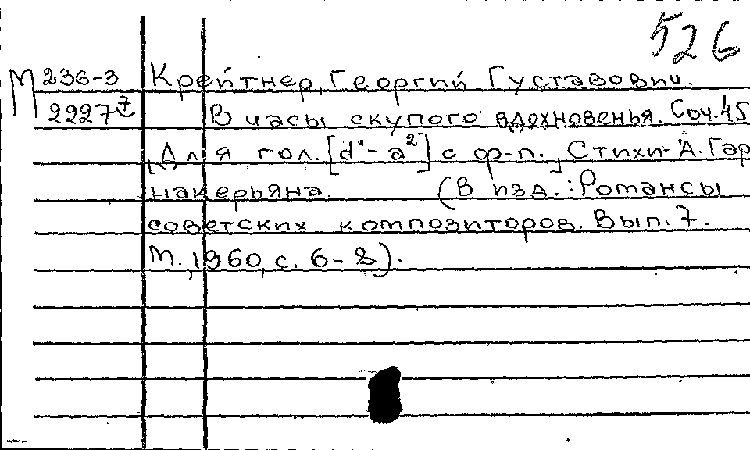 526
М 236-3 Крейтнер, Георгий Густавович.
2227 В часы скупого вдохновенья. Соч. 45
Для гол. [d¹-a²] с ф-п. Стихи А. Гар
накерьяна. (В изд.: Романсы
советских композиторов. Вып. 7.
М., 1960, с. 6-8).